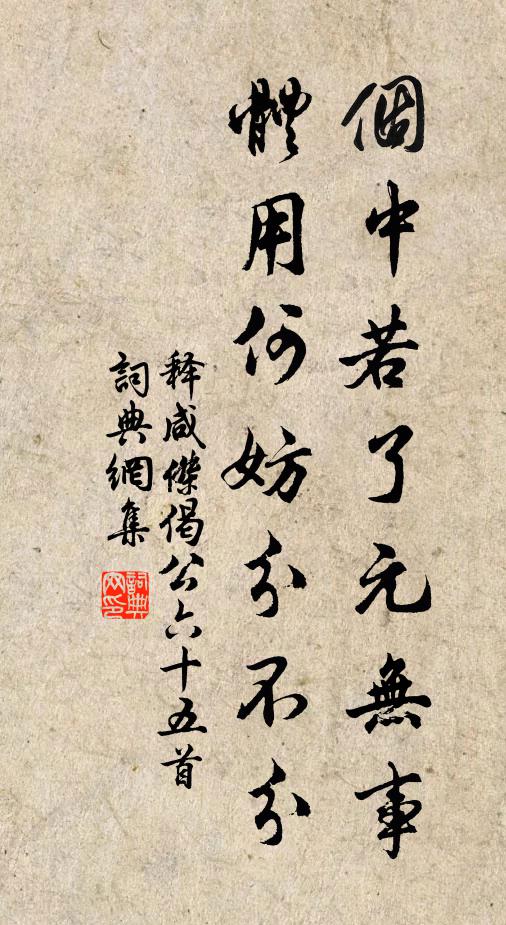 個中若了元無事
體用何妨分不分
释咸傑偈公六十五首
詞典網集
詞典网印